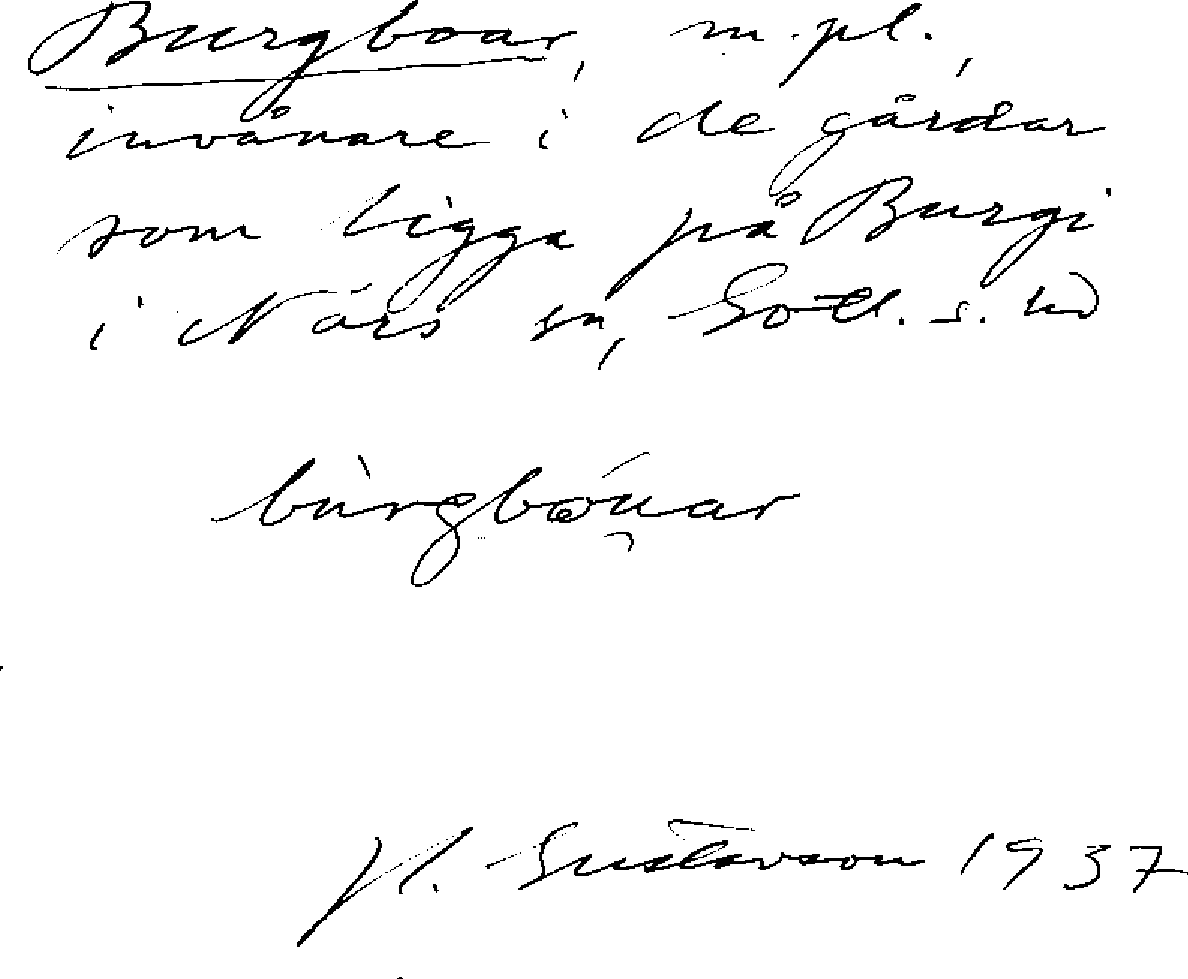 Burgboar, m.pl.,
invånare i de gårdar
som ligga på Burgi
i Närs sn, Gotl. s. hd
H. Gustavson 1937